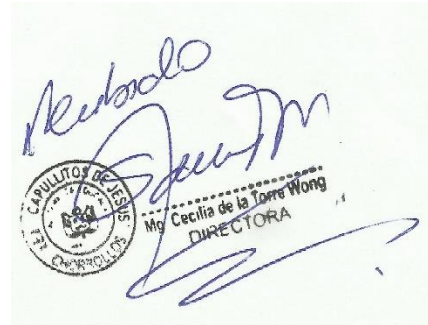 Recibido
CAPULLITOS DE JESUS
CHORRILLOS
Mg Cecilia de la Torre Wong
DIRECTORA